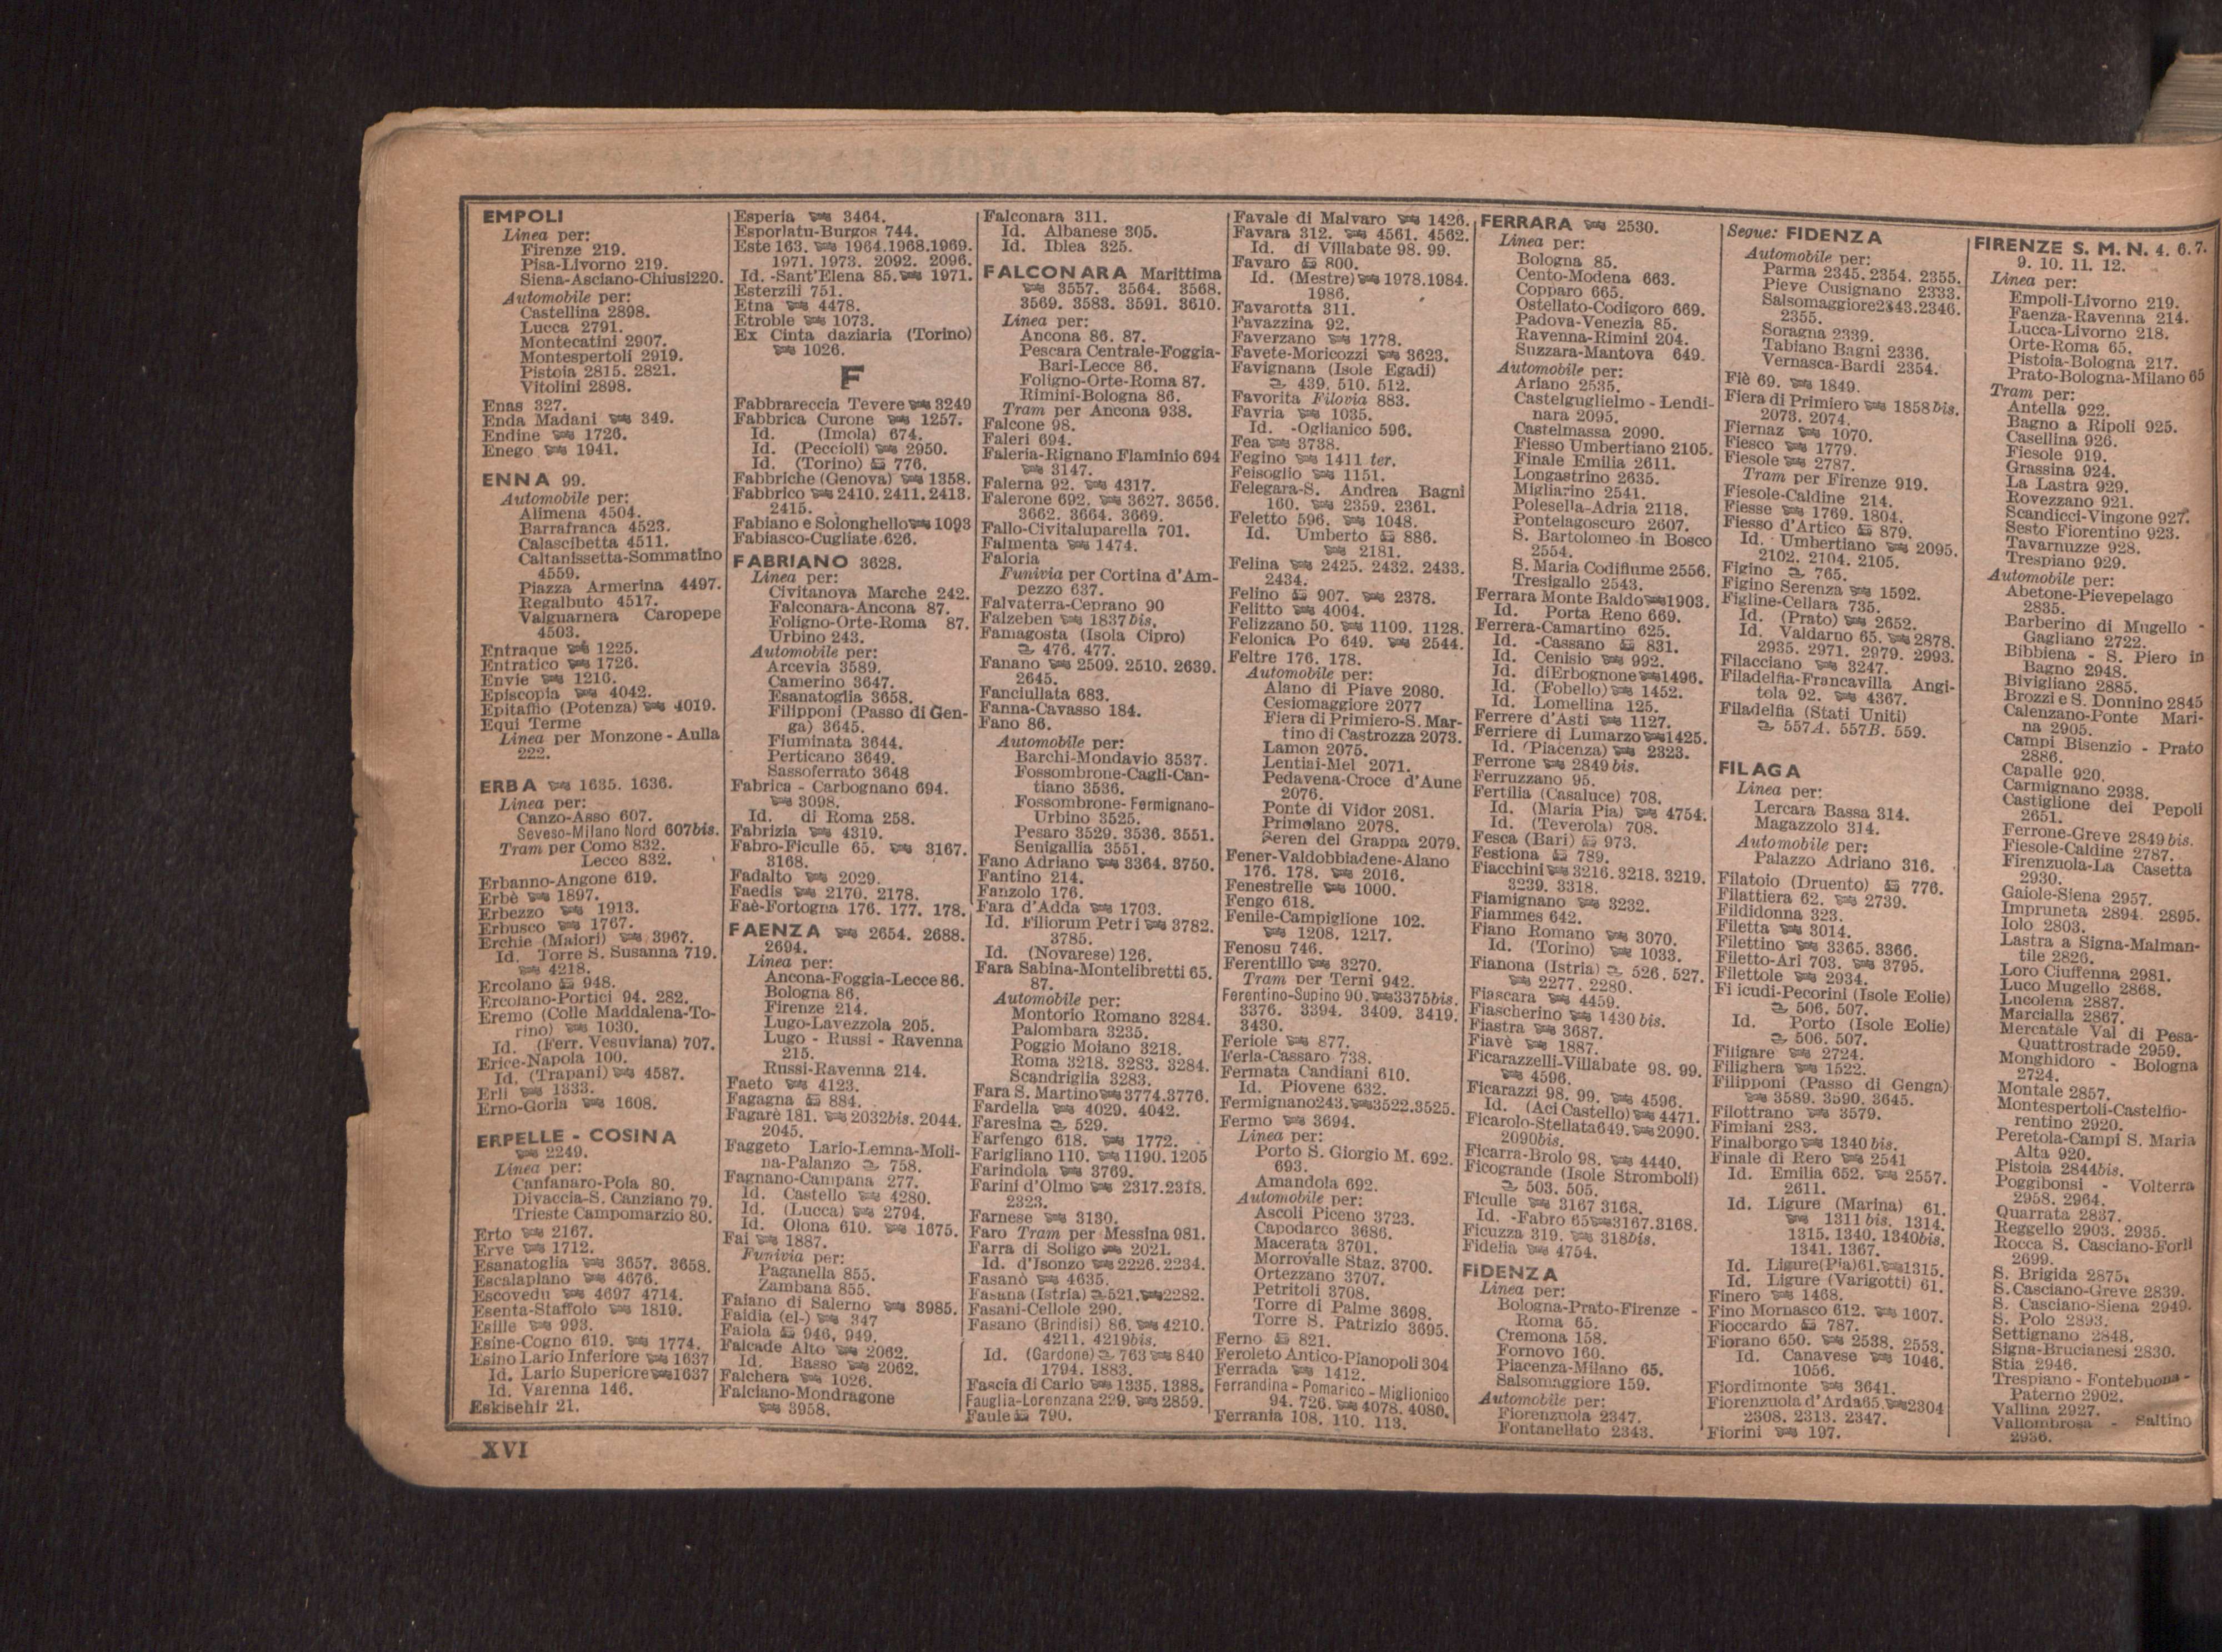 EMPOLI
Linea per:
Firenze 219.
Pisa-Livorno 219.
Siena-Asciano-Chiusi 220.
Automobile per:
Castellina 2898.
Lucca 2791.
Montecatini 2907.
Montespertoli 2919.
Pistoia 2815. 2821.
Vitolini 2898.
Enas 327.
Enda Madani 349.
Endine 1726.
Enego 1941.
ENNA 99.
Automobile per:
Alimena 4504.
Barrafranca 4523.
Calascibetta 4511.
Caltanissetta-Sommatino
4559.
Piazza Armerina 4497.
Regalbuto 4517.
Valguarnera Caropepe
4503.
Entraque 1225.
Entratico 1726.
Envie 1216.
Episcopia 4042.
Epitaffio (Potenza) 4019.
Equi Terme
Linea per Monzone - Aulla
222.
ERBA 1635. 1636.
Linea per:
Canzo-Asso 607.
Seveso-Milano Nord 607bis.
Tram per Como 832.
Lecco 832.
Erbanno-Angone 619.
Erbè 1897.
Erbezzo 1913.
Erbusco 1767.
Erchie (Maiori) 3967.
Id. Torre S. Susanna 719.
4218.
Ercolano 948.
Ercolano-Portici 94. 282.
Eremo (Colle Maddalena-To-
rino) 1030.
Id. (Ferr. Vesuviana) 707.
Erice-Napola 100.
Id. (Trapani) 4587.
Erli 1333.
Erno-Goria 1608.
ERPELLE - COSINA
2249.
Linea per:
Canfanaro-Pola 80.
Divaccia-S. Canziano 79.
Trieste Campomarzio 80.
Erto 2167.
Erve 1712.
Esanatoglia 3657. 3658.
Escalaplano 4676.
Escovedu 4697 4714.
Esenta-Staffolo 1819.
Esille 993.
Esine-Cogno 619. 1774.
Esino Lario Inferiore 1637
Id. Lario Superiore 1637
Id. Varenna 146.
Eskisehir 21.
Esperia 3464.
Esporlatu-Burgos 744.
Este 163. 1964.1968.1969.
1971. 1973. 2092. 2096.
Id. -Sant'Elena 85. 1971.
Esterzili 751.
Etna 4478.
Etroble 1073.
Ex Cinta daziaria (Torino)
1026.
F
Fabbrareccia Tevere 3249
Fabbrica Curone 1257.
Id. (Imola) 674.
Id. (Peccioli) 2950.
Id. (Torino) 776.
Fabbriche (Genova) 1358.
Fabbrico 2410. 2411. 2413.
2415.
Fabiano e Solonghello 1093
Fabiasco-Cugliate 626.
FABRIANO 3628.
Linea per:
Civitanova Marche 242.
Falconara-Ancona 87.
Foligno-Orte-Roma 87.
Urbino 243.
Automobile per:
Arcevia 3589.
Camerino 3647.
Esanatoglia 3658.
Filipponi (Passo di Gen-
ga) 3645.
Fiuminata 3644.
Perticano 3649.
Sassoferrato 3648
Fabrica - Carbognano 694.
3098.
Id. di Roma 258.
Fabrizia 4319.
Fabro-Ficulle 65. 3167.
3168.
Fadalto 2029.
Faedis 2170. 2178.
Faè-Fortogna 176. 177. 178.
FAENZA 2654. 2688.
2694.
Linea per:
Ancona-Foggia-Lecce 86.
Bologna 86.
Firenze 214.
Lugo-Lavezzola 205.
Lugo - Russi - Ravenna
215.
Russi-Ravenna 214.
Faeto 4123.
Fagagna 884.
Fagarè 181. 2032bis. 2044.
2045.
Faggeto Lario-Lemna-Moli-
na-Palanzo 758.
Fagnano-Campana 277.
Id. Castello 4280.
Id. (Lucca) 2794.
Id. Olona 610. 1675.
Fai 1887.
Funivia per:
Paganella 855.
Zambana 855.
Faiano di Salerno 3985.
Faidia (el-) 347
Faiola 946, 949.
Falcade Alto 2062.
Id. Basso 2062.
Falchera 1026.
Falciano-Mondragone
3958.
Falconara 311.
Id. Albanese 305.
Id. Iblea 325.
FALCONARA Marittima
3557. 3564. 3568.
3569. 3583. 3591. 3610.
Linea per:
Ancona 86. 87.
Pescara Centrale-Foggia-
Bari-Lecce 86.
Foligno-Orte-Roma 87.
Rimini-Bologna 86.
Tram per Ancona 938.
Falcone 98.
Faleri 694.
Faleria-Rignano Flaminio 694
3147.
Falerna 92. 4317.
Falerone 692. 3627. 3656.
3662. 3664. 3669.
Fallo-Civitaluparella 701.
Falmenta 1474.
Faloria
Funivia per Cortina d'Am-
pezzo 637.
Falvaterra-Ceprano 90
Falzeben 1837bis.
Famagosta (Isola Cipro)
476. 477.
Fanano 2509. 2510. 2639.
2645.
Fanciullata 683.
Fanna-Cavasso 184.
Fano 86.
Automobile per:
Barchi-Mondavio 3537.
Fossombrone-Cagli-Can-
tiano 3536.
Fossombrone-Fermignano-
Urbino 3525.
Pesaro 3529. 3536. 3551.
Senigallia 3551.
Fano Adriano 3364. 3750.
Fantino 214.
Fanzolo 176.
Fara d'Adda 1703.
Id. Filiorum Petri 3782.
3785.
Id. (Novarese) 126.
Fara Sabina-Montelibretti 65.
87.
Automobile per:
Montorio Romano 3284.
Palombara 3235.
Poggio Moiano 3218.
Roma 3218. 3283. 3284.
Scandriglia 3283.
Fara S. Martino 3774.3776.
Fardella 4029. 4042.
Faresina 529.
Farfengo 618. 1772.
Farigliano 110. 1190. 1205
Farindola 3769.
Farini d'Olmo 2317.2318.
2323.
Farnese 3130.
Faro Tram per Messina 981.
Farra di Soligo 2021.
Id. d'Isonzo 2226. 2234.
Fasanò 4635.
Fasana (Istria) 521. 2282.
Fasani-Cellole 290.
Fasano (Brindisi) 86. 4210.
4211. 4219bis.
Id. (Gardone) 763 840
1794. 1883.
Fascia di Carlo 1335. 1388.
Fauglia-Lorenzana 229. 2859.
Faule 790.
Favale di Malvaro 1426.
Favara 312. 4561. 4562.
Id. di Villabate 98. 99.
Favaro 800.
Id. (Mestre) 1978.1984.
1986.
Favarotta 311.
Favazzina 92.
Faverzano 1778.
Favete-Moricozzi 3623.
Favignana (Isole Egadi)
439. 510. 512.
Favorita Filovia 883.
Favria 1035.
Id. -Oglianico 596.
Fea 3738.
Fegino 1411 ter.
Feisoglio 1151.
Felegara-S. Andrea Bagni
160. 2359. 2361.
Feletto 596. 1048.
Id. Umberto 886.
2181.
Felina 2425. 2432. 2433.
2434.
Felino 907. 2378.
Felitto 4004.
Felizzano 50. 1109. 1128.
Felonica Po 649. 2544.
Feltre 176. 178.
Automobile per:
Alano di Piave 2080.
Cesiomaggiore 2077
Fiera di Primiero-S. Mar-
tino di Castrozza 2073.
Lamon 2075.
Lentiai-Mel 2071.
Pedavena-Croce d'Aune
2076.
Ponte di Vidor 2081.
Primolano 2078.
Seren del Grappa 2079.
Fener-Valdobbiadene-Alano
176. 178. 2016.
Fenestrelle 1000.
Fengo 618.
Fenile-Campiglione 102.
1208. 1217.
Fenosu 746.
Ferentillo 3270.
Tram per Terni 942.
Ferentino-Supino 90. 3375bis.
3376. 3394. 3409. 3419.
3430.
Feriole 877.
Ferla-Cassaro 738.
Fermata Candiani 610.
Id. Piovene 632.
Fermignano 243. 3522.3525.
Fermo 3694.
Linea per:
Porto S. Giorgio M. 692.
693.
Amandola 692.
Automobile per:
Ascoli Piceno 3723.
Capodarco 3686.
Macerata 3701.
Morrovalle Staz. 3700.
Ortezzano 3707.
Petritoli 3708.
Torre di Palme 3698.
Torre S. Patrizio 3695.
Ferno 821.
Feroleto Antico-Pianopoli 304
Ferrada 1412.
Ferrandina - Pomarico - Miglionico
94. 726. 4078. 4080.
Ferrania 108. 110. 113.
FERRARA 2530.
Linea per:
Bologna 85.
Cento-Modena 663.
Copparo 665.
Ostellato-Codigoro 669.
Padova-Venezia 85.
Ravenna-Rimini 204.
Suzzara-Mantova 649.
Automobile per:
Ariano 2535.
Castelguglielmo - Lendi-
nara 2095.
Castelmassa 2090.
Fiesso Umbertiano 2105.
Finale Emilia 2611.
Longastrino 2635.
Migliarino 2541.
Polesella-Adria 2118.
Pontelagoscuro 2607.
S. Bartolomeo in Bosco
2554.
S. Maria Codifiume 2556.
Tresigallo 2543.
Ferrara Monte Baldo 1903.
Id. Porta Reno 669.
Ferrera-Camartino 625.
Id. -Cassano 831.
Id. Cenisio 992.
Id. di Erbognone 1496.
Id. (Fobello) 1452.
Id. Lomellina 125.
Ferrere d'Asti 1127.
Ferriere di Lumarzo 1425.
Id. (Piacenza) 2323.
Ferrone 2849 bis.
Ferruzzano 95.
Fertilia (Casaluce) 708.
Id. (Maria Pia) 4754.
Id. (Teverola) 708.
Fesca (Bari) 973.
Festiona 789.
Fiacchini 3216. 3218. 3219.
3239. 3318.
Fiamignano 3232.
Fiammes 642.
Fiano Romano 3070.
Id. (Torino) 1033.
Fianona (Istria) 526. 527.
2277. 2280.
Fiascara 4459.
Fiascherino 1430 bis.
Fiastra 3687.
Fiavè 1887.
Ficarazzelli-Villabate 98. 99.
4596.
Ficarazzi 98. 99. 4596.
Id. (Aci Castello) 4471.
Ficarolo-Stellata 649. 2090.
2090bis.
Ficarra-Brolo 98. 4440.
Ficogrande (Isole Stromboli)
503. 505.
Ficulle 3167 3168.
Id. -Fabro 65 3167.3168.
Ficuzza 319. 318bis.
Fidelia 4754.
FIDENZA
Linea per:
Bologna-Prato-Firenze -
Roma 65.
Cremona 158.
Fornovo 160.
Piacenza-Milano 65.
Salsomaggiore 159.
Automobile per:
Fiorenzuola 2347.
Fontanellato 2343.
Segue: FIDENZA
Automobile per:
Parma 2345. 2354. 2355.
Pieve Cusignano 2333.
Salsomaggiore 2343.2346.
2355.
Soragna 2339.
Tabiano Bagni 2336.
Vernasca-Bardi 2354.
Fiè 69. 1849.
Fiera di Primiero 1858bis.
2073. 2074.
Fiernaz 1070.
Fiesco 1779.
Fiesole 2787.
Tram per Firenze 919.
Fiesole-Caldine 214.
Fiesse 1769. 1804.
Fiesso d'Artico 879.
Id. Umbertiano 2095.
2102. 2104. 2105.
Figino 765.
Figino Serenza 1592.
Figline-Cellara 735.
Id. (Prato) 2652.
Id. Valdarno 65. 2878.
2935. 2971. 2979. 2993.
Filacciano 3247.
Filadelfia-Francavilla Angi-
tola 92. 4367.
Filadelfia (Stati Uniti)
557A. 557B. 559.
FILAGA
Linea per:
Lercara Bassa 314.
Magazzolo 314.
Automobile per:
Palazzo Adriano 316.
Filatoio (Druento) 776.
Filattiera 62. 2739.
Fildidonna 323.
Filetta 3014.
Filettino 3365. 3366.
Filetto-Ari 703. 3795.
Filettole 2934.
Fi icudi-Pecorini (Isole Eolie)
506. 507.
Id. Porto (Isole Eolie)
506. 507.
Filigare 2724.
Filighera 1522.
Filipponi (Passo di Genga)
3589. 3590. 3645.
Filottrano 3579.
Fimiani 283.
Finalborgo 1340 bis.
Finale di Rero 2541
Id. Emilia 652. 2557.
2611.
Id. Ligure (Marina) 61.
1311 bis. 1314.
1315. 1340. 1340bis.
1341. 1367.
Id. Ligure (Pia) 61. 1315.
Id. Ligure (Varigotti) 61.
Finero 1468.
Fino Mornasco 612. 1607.
Fioccardo 787.
Fiorano 650. 2538. 2553.
Id. Canavese 1046.
1056.
Fiordimonte 3641.
Fiorenzuola d'Arda 65. 2304
2308. 2313. 2347.
Fiorini 197.
FIRENZE S. M. N. 4. 6. 7.
9. 10. 11. 12.
Linea per:
Empoli-Livorno 219.
Faenza-Ravenna 214.
Lucca-Livorno 218.
Orte-Roma 65.
Pistoia-Bologna 217.
Prato-Bologna-Milano 65
Tram per:
Antella 922.
Bagno a Ripoli 925.
Casellina 926.
Fiesole 919.
Grassina 924.
La Lastra 929.
Rovezzano 921.
Scandicci-Vingone 927.
Sesto Fiorentino 923.
Tavarnuzze 928.
Trespiano 929.
Automobile per:
Abetone-Pievepelago
2835.
Barberino di Mugello -
Gagliano 2722.
Bibbiena - S. Piero in
Bagno 2948.
Bivigliano 2885.
Brozzi e S. Donnino 2845
Calenzano-Ponte Mari-
na 2905.
Campi Bisenzio - Prato
2886.
Capalle 920.
Carmignano 2938.
Castiglione dei Pepoli
2651.
Ferrone-Greve 2849 bis.
Fiesole-Caldine 2787.
Firenzuola-La Casetta
2930.
Gaiole-Siena 2957.
Impruneta 2894. 2895.
Iolo 2803.
Lastra a Signa-Malman-
tile 2826.
Loro Ciuffenna 2981.
Luco Mugello 2868.
Lucolena 2887.
Marcialla 2867.
Mercatale Val di Pesa-
Quattrostrade 2959.
Monghidoro - Bologna
2724.
Montale 2857.
Montespertoli-Castelfio-
rentino 2920.
Peretola-Campi S. Maria
Alta 920.
Pistoia 2844bis.
Poggibonsi - Volterra
2958. 2964.
Quarrata 2837.
Reggello 2903. 2935.
Rocca S. Casciano-Forlì
2699.
S. Brigida 2875.
S. Casciano-Greve 2839.
S. Casciano-Siena 2949.
S. Polo 2893.
Settignano 2848.
Signa-Brucianesi 2830.
Stia 2946.
Trespiano - Fontebuona -
Paterno 2902.
Vallina 2927.
Vallombrosa - Saltino
2936.
XVI